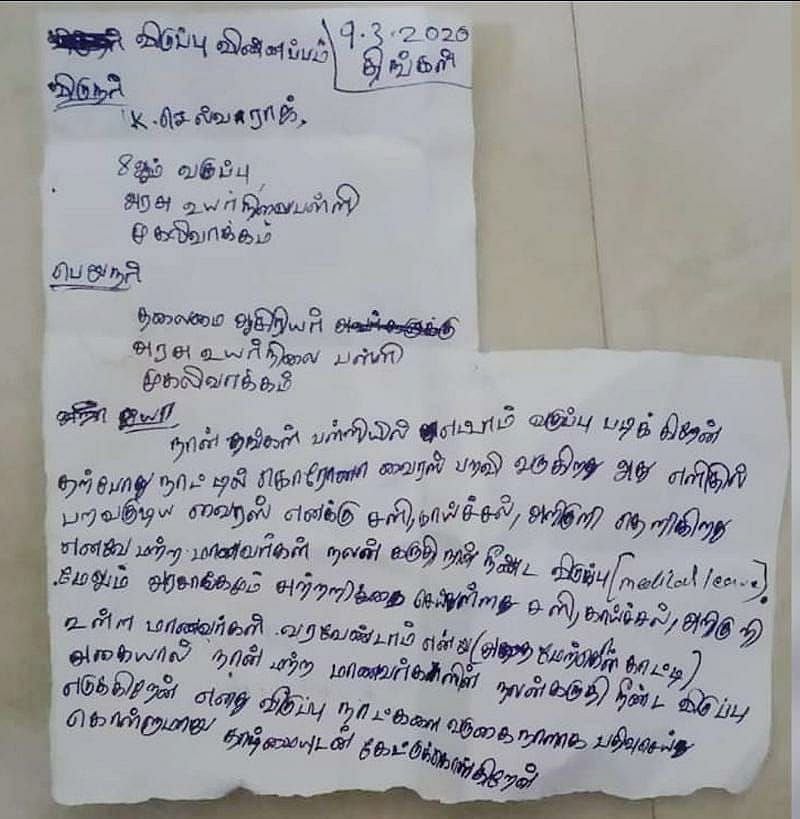 விடுப்பு விண்ணப்பம்
9.3.2020
திங்கள்
விடுநர்
K. செல்வராஜ்,
8ஆம் வகுப்பு
அரசு உயர்நிலைபள்ளி
முகலிவாக்கம்
பெறுநர்
தலைமை ஆசிரியர்
அரசு உயர்நிலை பள்ளி
முகலிவாக்கம்
ஐயா
நான் தங்கள் பள்ளியில் எட்டாம் வகுப்பு படிக்கிறேன்
தற்போது நாட்டில் கொரோனா வைரஸ் பரவி வருகிறது அது எளிதில்
பரவகுடிய வைரஸ் எனக்கு சளி, காய்ச்சல், அறிகுறி தெறிகிறது
எனவே மற்ற மாணவர்கள் நலன் கருதி நான் நீண்ட விடுப்பு (medical leave).
மேலும் அரசாங்கமும் செய்துள்ளது சளி, காய்ச்சல், அறிகுறி
உள்ள மாணவர்கள் வரவேண்டாம் என்று (அதை மேற்கோள் காட்டி)
அகையால் நான் மற்ற மாணவர்களின் நலன்கருதி நீண்ட விடுப்பு
எடுக்கிறேன் எனது விடுப்பு நாட்களை வருகைநாளாக பதிவுசெய்து
கொள்ளுமாறு தாழ்மையுடன் கேட்டுக்கொள்கிறேன்